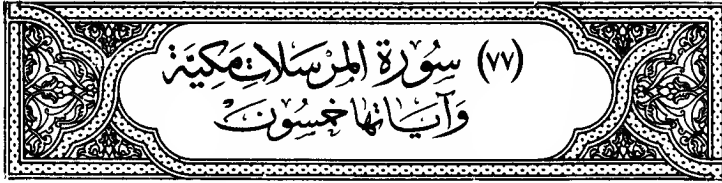 (٧٧) سُوْرَة المرْسَلات مَكِيَّة
وَآيَاتُهَا خَمْسُونَ